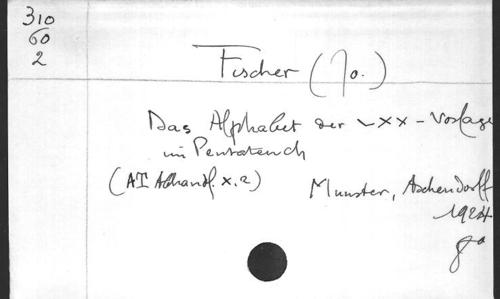 310
60
2
Fischer (Jo.)
Das Alphabet der LXX-Vorlage
im Pentateuch
(AT Abhandl. X. 2) Munster, Aschendorff
1924
8°